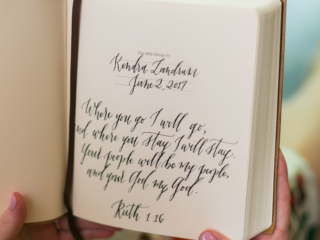 This Bible belongs to:
Kendra Landrum
June 2, 2017
Where you go I will go,
and where you stay I will stay.
Your people will be my people,
and your God, my God.
Ruth 1:16